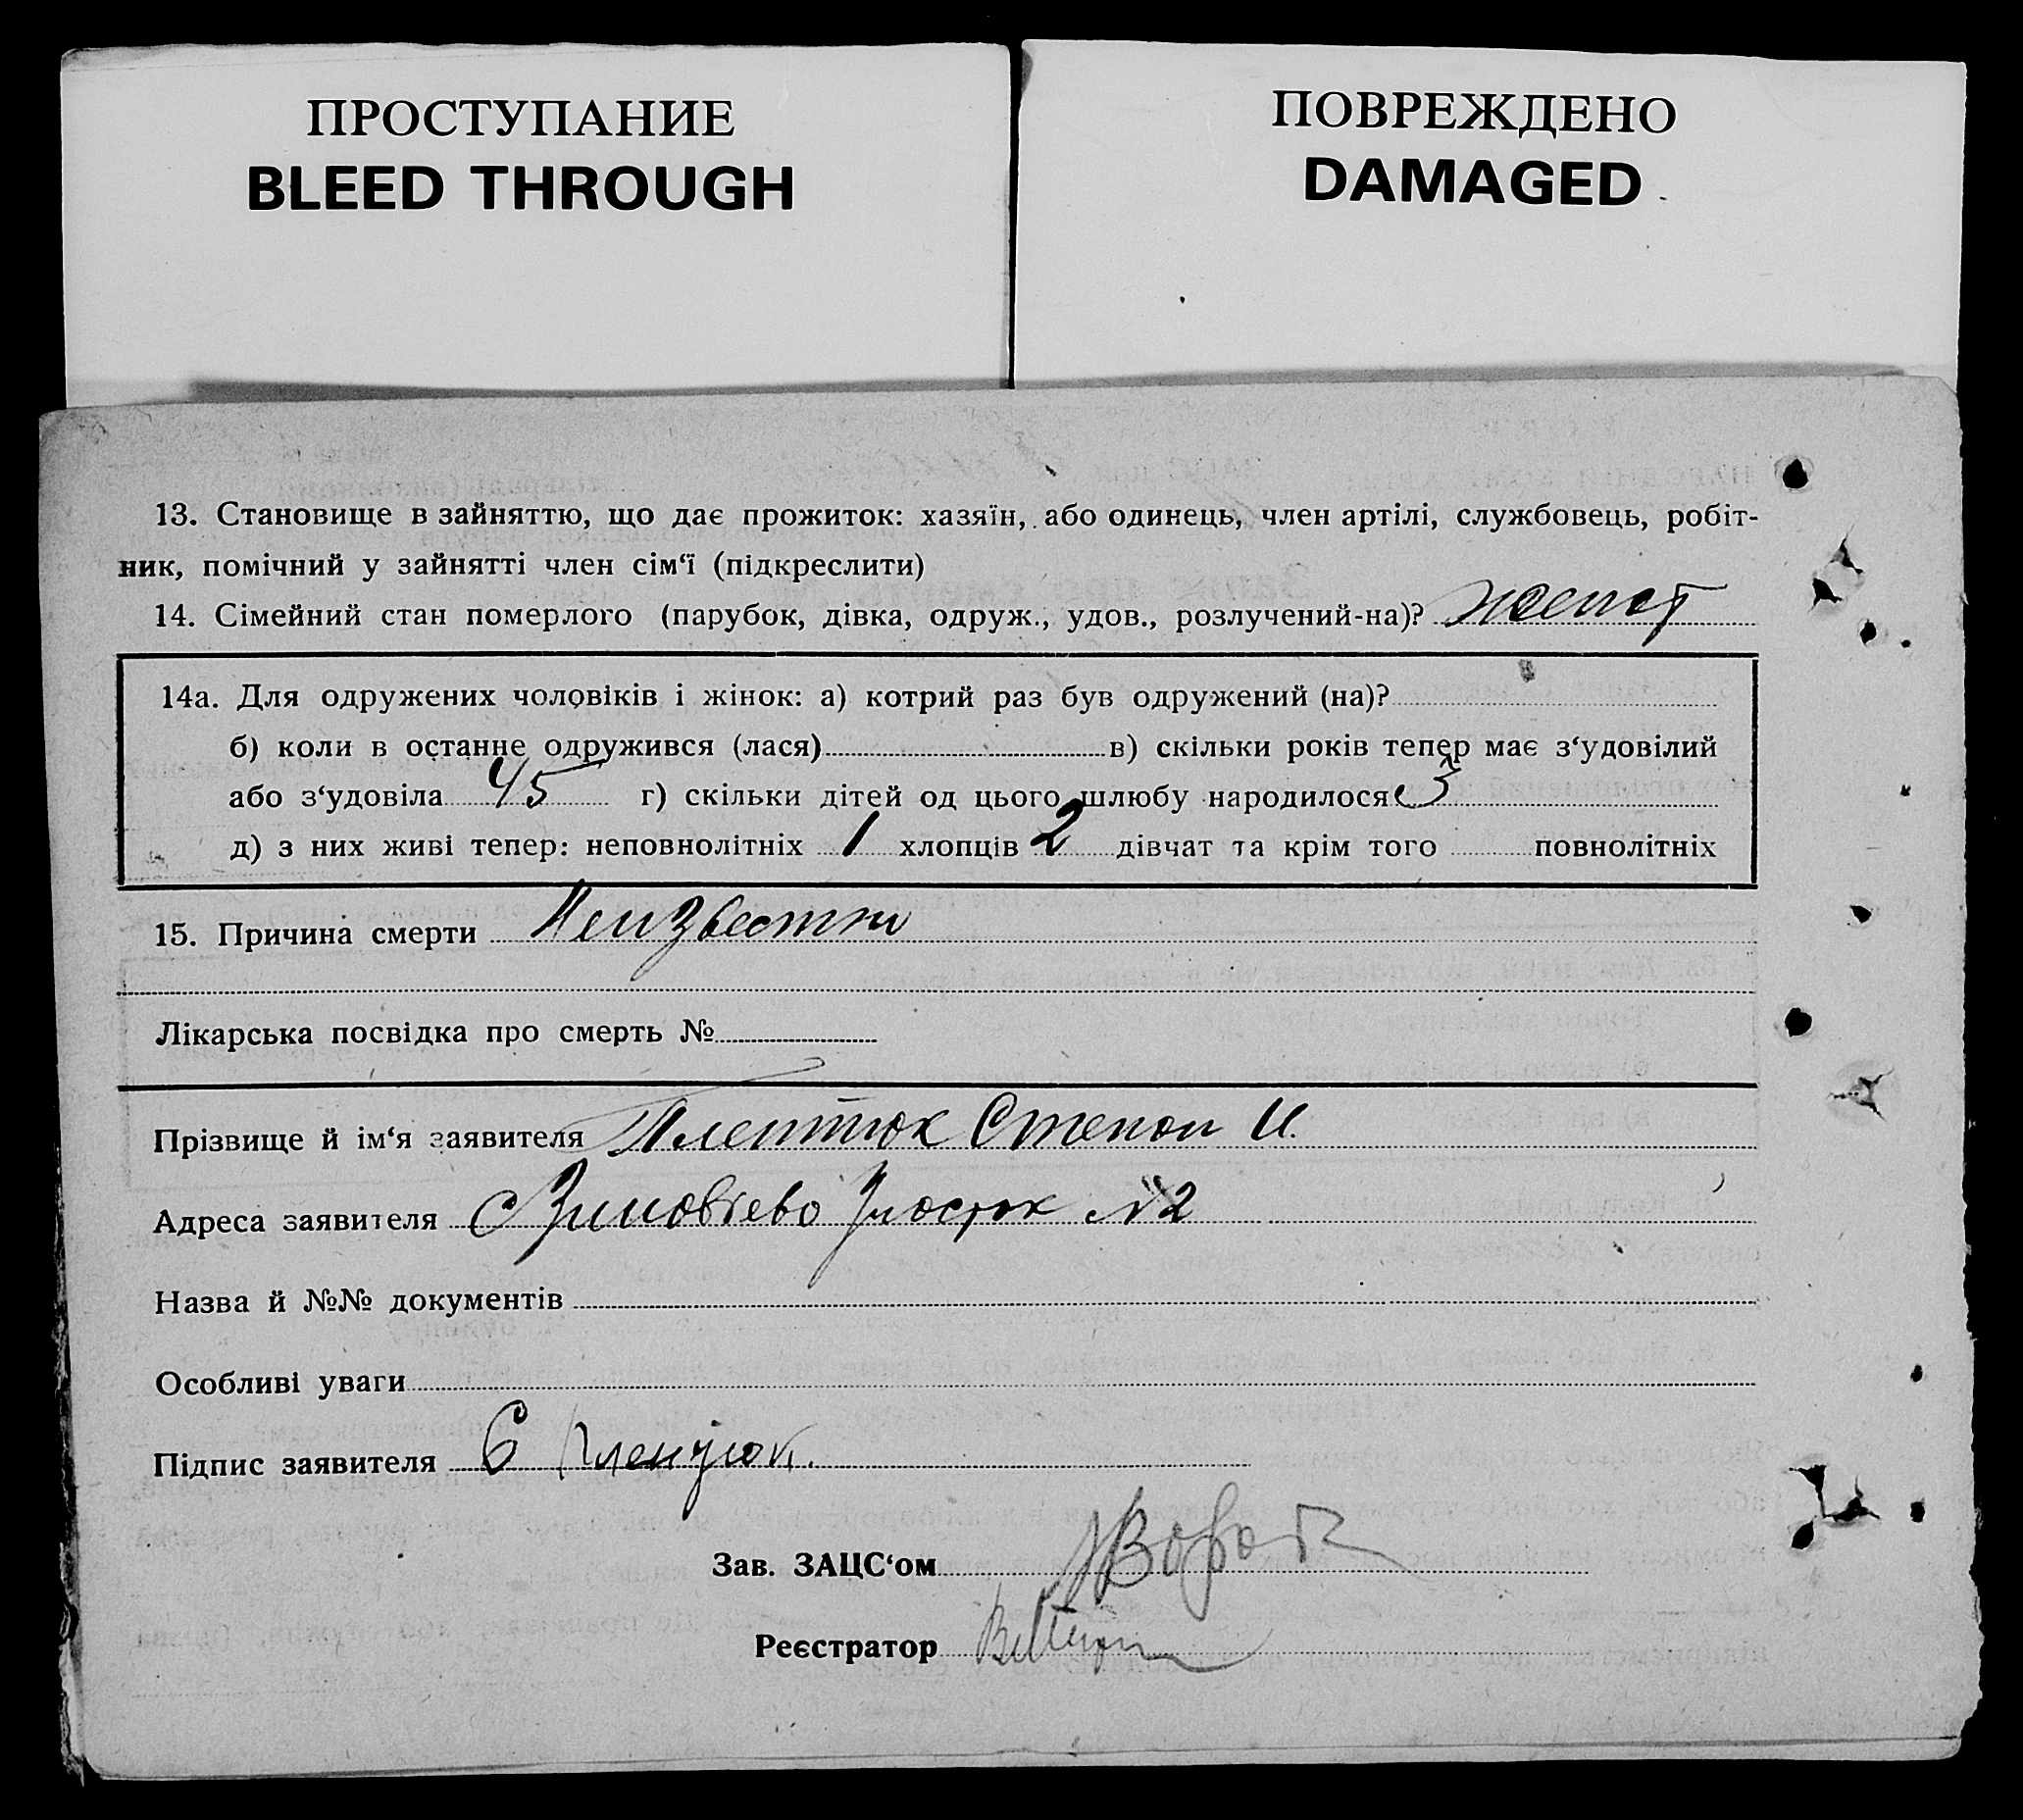 ПРОСТУПАНИЕ
BLEED THROUGH
ПОВРЕЖДЕНО
DAMAGED
13. Становище в зайняттю, що дає прожиток: хазяїн, або одинець, член артілі, службовець, робіт-
ник, помічний у зайнятті член сім‘ї (підкреслити)
14. Сімейний стан померлого (парубок, дівка, одруж., удов., розлучений-на)? женат
14а. Для одружених чоловіків і жінок: а) котрий раз був одружений (на)?
б) коли в останнє одружився (лася) в) скільки років тепер має з‘удовілий
або з‘удовіла 45 г) скільки дітей од цього шлюбу народилося 3
д) з них живі тепер: неповнолітніх 1 хлопців 2 дівчат та крім того повнолітніх
15. Причина смерти Неизвестно
Лікарська посвідка про смерть №
Прізвище й ім‘я заявителя Степан И.
Адреса заявителя Зиновʼево №2
Назва й №№ документів
Особливі уваги
Підпис заявителя С
Зав. ЗАЦС‘ом
Реєстратор